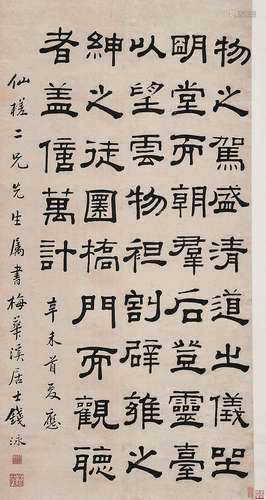 物之駕盛清道之儀坐
明堂而朝羣后登靈臺
以望雲物袒割辟雍之
紳之徒圜橋門而觀聽
者蓋億萬計
辛未首夏應
仙槎二兄先生属書梅華溪居士錢泳